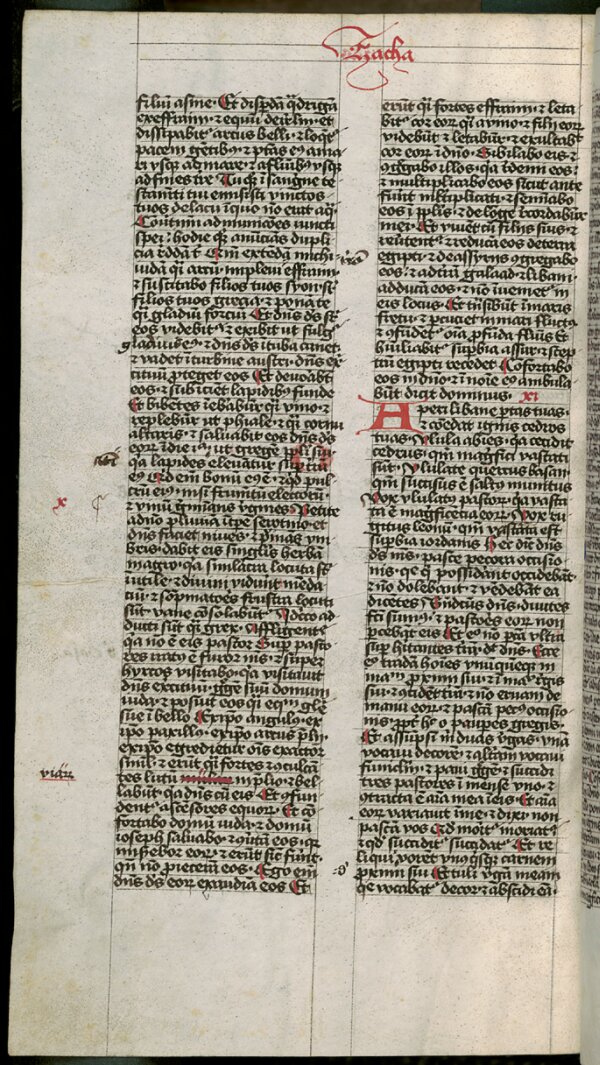 Zacha
filiū asine · Et disp̄dā q̄drigā
ex effraim · ⁊ equū de irl̄m · et
dissipabit᷑ arcus belli · ⁊ loq̄t᷑
pacem gētibꝯ · ⁊ ptās eꝯ a ma
ri vsqꝫ ad mare · ⁊ a flu̅ibꝯ vsqꝫ
ad fines tr̄e · Tu qꝫ ī sangne te
stamti tui emisisti vinctos
tuos de lacu ī quo nō erat aq̄ ·
Cōutim ad municōes iuncti
spei · hodie qꝫ anūcians dupli
cia reddā t᷑ · Qm̄ extēdā michi
iudā qͥ arcū · impleui effraim ·
⁊ suscitabo filios tuos syon · sꝑ
filios tuos grecia · ⁊ ponā te
qͥ gladiū forciū · Et dn̄s ds̄ sꝑ
eos videbit᷑ · ⁊ exibit ut fulg᷑
iaculū eꝯ · ⁊ dn̄s ds̄ ī tuba canet ·
⁊ vadet ī turbine austri · dn̄s ex̄
cituū proteget eos · Et deuorabt̄
eos · ⁊ subicēt lapidibꝯ funde
Et bibētes īebriabūr qͥ vīno · ⁊
replebūr ut phiale · ⁊ qͥ cornu
altaris · ⁊ saluabit eos dn̄s ds̄
eorꝝ ī die ia · ut gregē ppl̄i sui ·
qa lapides eleuātur suꝑ t̄rā
eꝯ · Qd em̄ bonū eꝯ ē · ⁊ qd pul
crū eꝯ · nisi frumtū electorū
⁊ vinū gͥmināns vgines · Petite
a dn̄o pluuiā ī tp̄e serotino · et
dn̄s faciet niues · ⁊ pͥmas ym
bris · dabit eis singl̄is herbā
magro · qa simlatra locuta sꝭ
īutile · ⁊ diuini vidūnt meda
ciū · ⁊ sōpniatoes frustra locuti
sūt · vane cōsolabūt᷑ · Idcco ad
ducti sūt qͥ grex · Affligent᷑
qa nō ē eis pastor · Sup pasto
res irat᷑ ē furor m̄s · ⁊ super
hyrcos visitabo · qa visitauit
dn̄s excituū · g̅gē suū domum
iuda · ⁊ posuit eos qͥ eqm̄ gl̄e
sue ī bello · Ex ip̄o angulꝯ · ex
ip̄o paxillꝯ · ex ip̄o arcus p̄lij ·
ex ip̄o egredietur oīs exactor
simlꝭ · ⁊ erūt qͥ fortes ꝯculcā
tes lutū viarꝝ in p̄lio · ⁊ bel
labūt · qa dn̄s cū eis · Et ꝯfun
dent᷑ ascēsores equorꝝ · Et cō
fortabo domū iuda · ⁊ domū
ioseph saluabo · ⁊ ꝯūtā eos · qꝛ
mīserebor eorꝝ · ⁊ erūt sic̄ fūnt ·
qn̄ nō p̄iecerā eos · Ego em̄
dn̄s ds̄ eorꝝ exaudiā eos · Et
x
viarꝝ
erūt qͥ fortes effraim · ⁊ leta
bit᷑ cor eorꝝ qͥ a vīno · ⁊ filij eorꝝ
videbūt ⁊ letabūr · ⁊ exultabt̄
cor eorꝝ ī dn̄o · Sibilabo eis ⁊
ꝯgͤgabo illos · qa redemi eos ·
⁊ multiplicabo eos sicut ante
fuūt ml̄tiplicati · ⁊ semīabo
eos ī ppl̄is · ⁊ de lōge recordabūr
mei · Et viuēt cū filiis suis · ⁊
reūtent᷑ · ⁊ reducā eos de terra
egipti · ⁊ de assyriis ꝯgregabo
eos · ⁊ ad t̄rā galaad ⁊ libani
adducā eos · ⁊ nō īueniet᷑ in
eis locus · Et tn̄sibūt ī maris
fretu · ⁊ ꝑcutiet in mari fluctꝯ
⁊ ꝯfūdēt᷑ oīa ꝓfūda flūis · Et
hūiliabit᷑ supbia assur · ⁊ scep
trū egipti recedet · Cōfortabo
eos in dn̄o · ⁊ ī noīe eꝯ ambula
būt · dicit dominus · xi
Aperi libane portas tuas ·
⁊ comedat ignis cedros
tuas · Vlula abies · qa cecidit
cedrus · qm̄ magnifici vastati
sūt · Vlulate quercus basan ·
qm̄ succisus ē saltꝯ munitus
Vox vlulatꝯ pastorꝝ · qa vasta
ta ē magnificētia eorꝝ · Vox ru
gitus leonū · qm̄ vastata est
supbia iordanis · Hec dic̄ dn̄s
ds̄ ms̄ · pasce pecora occisio
nis · qe qͥ possidāt occidebāt ·
⁊ nō dolebant · ⁊ vēdebāt ea
dicētes · Bn̄dictus dn̄s · diuites
fc̄i sumꝯ · ⁊ pastores eorꝝ non
ꝑcebāt eis · Et eꝯ nō ꝑcā vltra
sup hītantes t̄rā · dc̄ dn̄s · Ecce
eꝯ tradā hoīes vnūquēqꝫ in
manu ꝓximi sui · ⁊ ī manꝯ regis
sui · ⁊ ꝯcidēt t̄rā · ⁊ nō eruam de
manu eorꝝ · ⁊ pascā pecꝯ occisio
nis · ꝓpt᷑ hoc o pauperes gregis ·
Et assūpsi m̄ duas vgas · vnā
vocaui decorē · ⁊ altam vocaui
funiclm̄ · ⁊ paui g̅gē · ⁊ succidi
tres pastores ī mense vno · ⁊
ꝯtracta ē aīa mea ī eis · Et aīa
eorꝝ variauit ī me · ⁊ dixi · non
pascā vos · Qd morit᷑ moriat᷑ ·
⁊ qd succidit᷑ succidat᷑ · Et re
liqui vorēt vnꝯ qsqꝫ carnem
ꝓximi sui · Et tuli vgā meam
qe vocabat᷑ decorꝯ · ⁊ abscidi eā ·